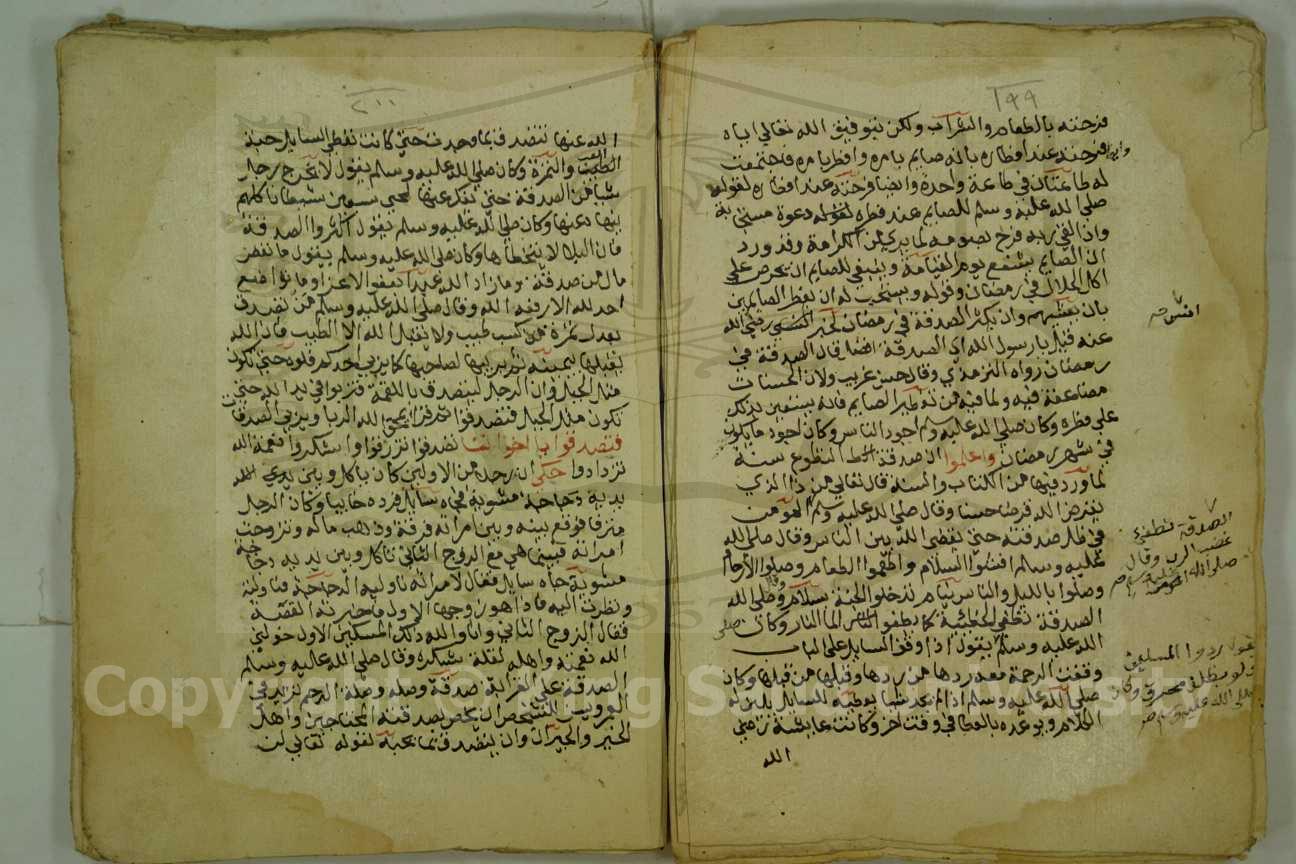 ١٩٩
فرحته بالطعام والشراب ولكن بتوفيق الله تعالى اياه
فرحته عند افطاره بانه صايم بامره وافطر بامره فاجتمعت
له طاعتان في طاعة واحدة وايضا فرحته عند افطاره لقوله
صلى الله عليه وسلم للصايم عند فطره دعوة مستجابة
واذا لقي ربه فرح بصومه لما يرى من الكرامة وقد ورد
ان الصايم يشفع يوم القيامة وينبغي للصايم ان يحرص على
اكل الحلال في رمضان وقوله ويستحب له ان يفطر الصايمين
بان يعشيهم وان يكثر الصدقة في رمضان لخبر انس رضي الله
عنه قيل يا رسول الله اي الصدقة افضل قال الصدقة في
رمضان رواه الترمذي وقال حسن غريب ولان الحسنات
مضاعفة فيه ولما فيه من تفطير الصايم فانه يستعين بذلك
على فطره وكان صلى الله عليه وسلم اجود الناس وكان اجود ما يكون
في شهر رمضان واعلموا ان صدقة التطوع سنة
لما ورد فيها من الكتاب والسنة قال تعالى من ذا الذي
يقرض الله قرضا حسنا وقال صلى الله عليه وسلم المؤمن
في ظل صدقته حتى يقضى الله بين الناس وقال صلى الله
عليه وسلم افشوا السلام واطعموا الطعام وصلوا الارحام
وصلوا بالليل والناس نيام تدخلوا الجنة بسلام وقال صلى الله
الصدقة تطفي الخطيئة كما يطفو الماء النار وكان صلى
الله عليه وسلم يقول اذا وقف السايل على الباب
وقفت الرحمة معه ردها من ردها وقبلها من قبلها وكان
صلى الله عليه وسلم اذا لم يجد شيا يعطيه للسايل يلين له
الكلام ويوعده بالعطا في وقت اخر وكانت عايشة رضي
الله
انس صح
الصدقة تطفي
غضب الرب وقال
صلى الله عليه وسلم
يقول ردوا المسلمين
ولو بظلف محرق وكان
صلى الله عليه وسلم صح
٢٠٠
الله عنها تتصدق بما وجدت حتى كانت تعطي السايل حبة
العنب والتمرة وكان صلى الله عليه وسلم يقول لا يخرج رجل
شيا من الصدقة حتى يفك عنها لحيي سبعين شيطانا كلهم
ينهاه عنها وكان صلى الله عليه وسلم يقول اكثروا الصدقة
فان البلا لا يتخطاها وكان صلى الله عليه وسلم يقول ما نقص
مال من صدقة وما زاد الله عبدا بعفو الا عزا وما تواضع
احد لله الا رفعه الله وقال صلى الله عليه وسلم من تصدق
بعدل تمرة من كسب طيب ولا يقبل الله الا الطيب فان الله
يقبلها بيمينه ثم يربيها لصاحبها كما يربي احدكم فلوه حتى تكون
مثل الجبل وان الرجل ليتصدق باللقمة فتربوا في يد الله حتى
تكون مثل الجبل فتصدقوا ثم قرا يمحق الله الربا ويربي الصدقات
فتصدقوا يا اخواننا تصدقوا ترزقوا واشكروا نعمة الله
تزدادوا حكى ان رجلا من الاولين كان ياكل وبين يديه
دجاجة مشوية فجاه سايل فرده خايبا وكان الرجل
مترفا فوقع بينه وبين امراته فرقة وذهب ماله وتزوجت
امراته فبينما هي مع الزوج الثاني تاكل وبين يديه دجاجة
مشوية جاه سايل فقال لامراته ناوليه الدجاجة فناولته
ونظرت اليه فاذا هو زوجها الاول فاخبرته القصة
فقال الزوج الثاني وانا والله ذلك المسكين الاول خولني
الله نعمته واهله لقلة شكره وقال صلى الله عليه وسلم
الصدقة على القرابة صدقة وصلة وصلة الرحم تزيد في
العمر ويسن للشخص ان يخص بصدقته المحتاجين واهل
الخير والجيران وان يتصدق بما يحبه لقوله تعالى لن
Copyright © King Saud University
1957